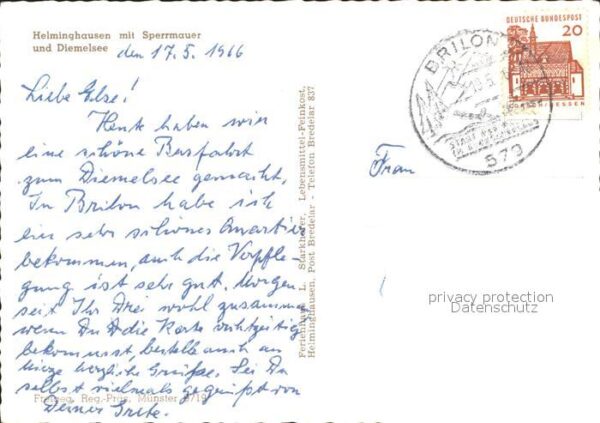 Helminghausen mit Sperrmauer
und Diemelsee
den 17.5.1966
Liebe Else!
Heute haben wir
eine schöne Busfahrt
zum Diemelsee gemacht.
In Brilon habe ich
ein sehr schönes Quartier
bekommen, auch die Verpfle-
gung ist sehr gut. Morgen
seit Ihr Drei wohl zusammen
wenn Du die Karte rechtzeitig
bekommst, bestelle auch an
herzliche Grüße. Sei Du
selbst vielmals gegrüßt von
Deiner Grete.
Reg.-Präs. Münster
Ferienhaus L. Starkhofer, Lebensmittel-Feinkost,
Helminghausen, Post Bredelar - Telefon Bredelar 837
DEUTSCHE BUNDESPOST
20
BRILON
579
Frau
privacy protection
Datenschutz